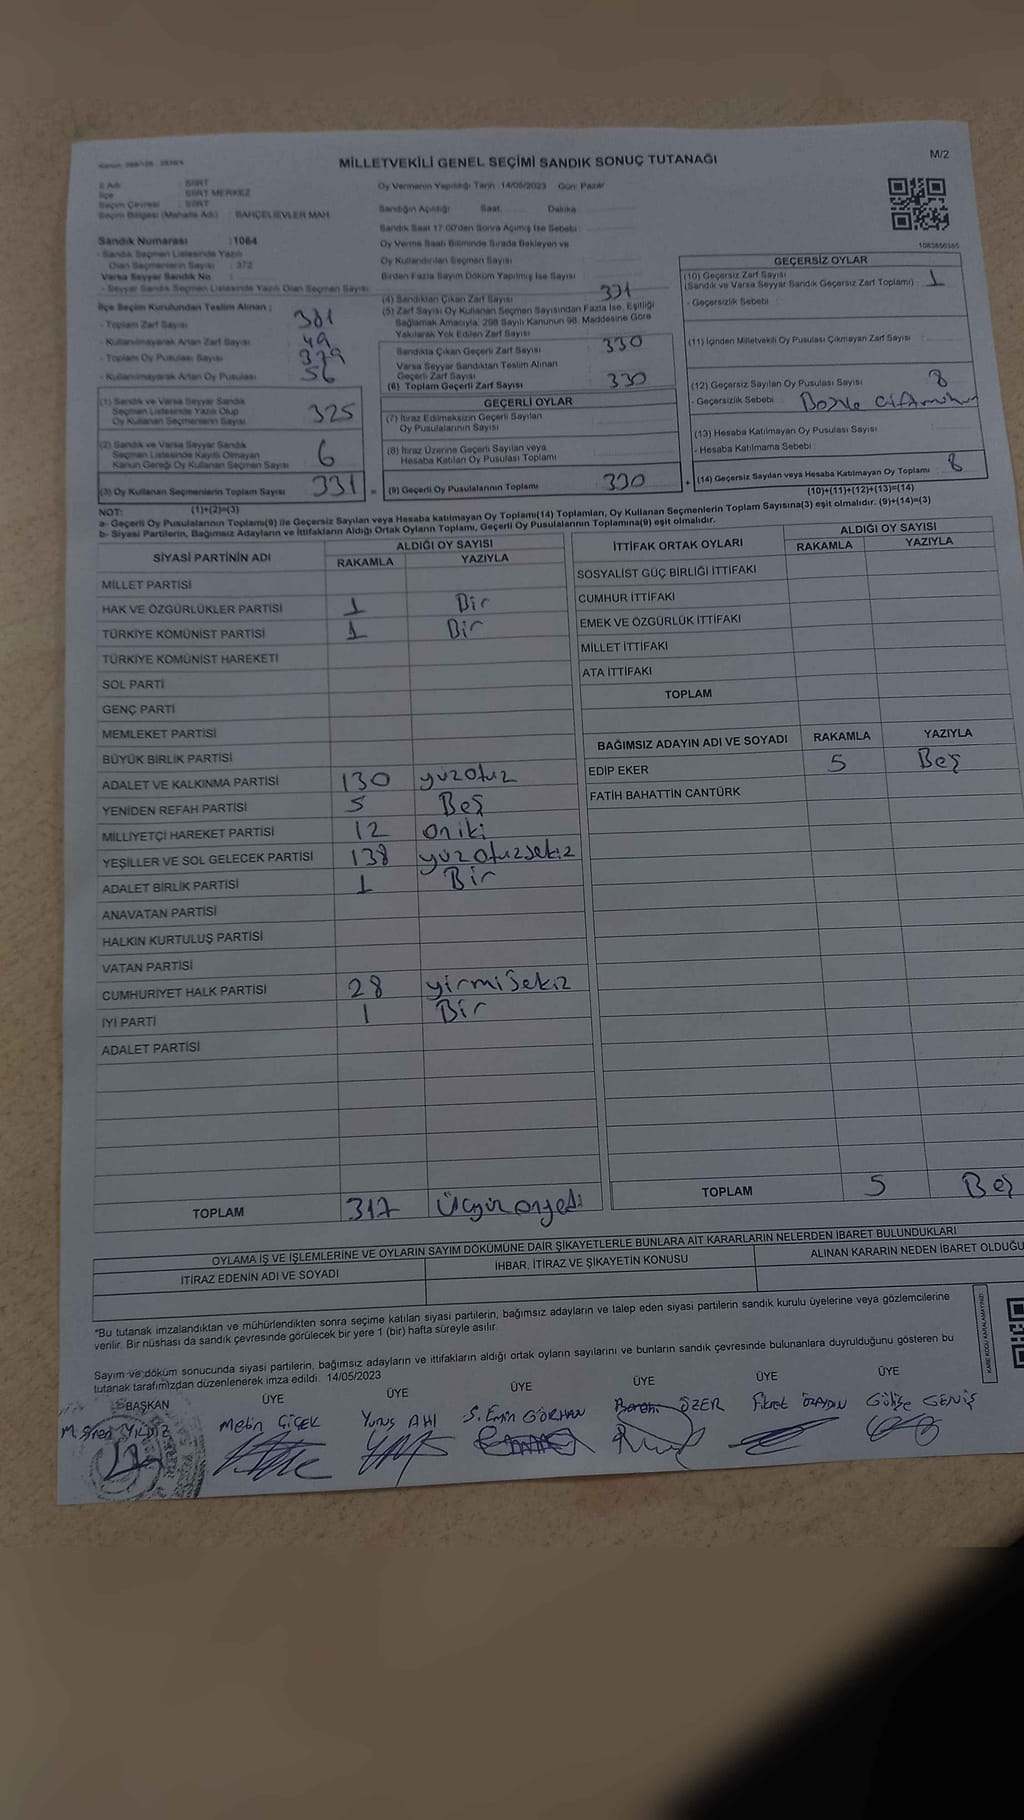 MİLLETVEKİLİ GENEL SEÇİMİ SANDIK SONUÇ TUTANAĞI
M/2
İl Adı : SİİRT
İlçe : SİİRT MERKEZ
Seçim Çevresi : SİİRT
Seçim Bölgesi (Mahalle Adı) : BAHÇELİEVLER MAH.
Oy Vermenin Yapıldığı Tarih :14/05/2023 Gün: Pazar
Sandığın Açıldığı Saat: Dakika
Sandık Saat 17:00'den Sonra Açılmış İse Sebebi :
Oy Verme Saati Bitiminde Sırada Bekleyen ve
Oy Kullandırılan Seçmen Sayısı
Birden Fazla Sayım Döküm Yapılmış İse Sayısı
1082850365
Sandık Numarası :1064
- Sandık Seçmen Listesinde Yazılı
Olan Seçmenlerin Sayısı : 372
Varsa Seyyar Sandık No
- Seyyar Sandık Seçmen Listesinde Yazılı Olan Seçmen Sayısı
İlçe Seçim Kurulundan Teslim Alınan :
- Toplam Zarf Sayısı 381
- Kullanılmayarak Artan Zarf Sayısı 49
- Toplam Oy Pusulası Sayısı 379
- Kullanılmayarak Artan Oy Pusulası 56
(1) Sandık ve Varsa Seyyar Sandık
Seçmen Listesinde Yazılı Olup
Oy Kullanan Seçmenlerin Sayısı 325
(2) Sandık ve Varsa Seyyar Sandık
Seçmen Listesinde Kayıtlı Olmayan
Kanun Gereği Oy Kullanan Seçmen Sayısı 6
(3) Oy Kullanan Seçmenlerin Toplam Sayısı 331 =
(4) Sandıktan Çıkan Zarf Sayısı 331
(5) Zarf Sayısı Oy Kullanan Seçmen Sayısından Fazla İse, Eşitliği
Sağlamak Amacıyla, 298 Sayılı Kanunun 98. Maddesine Göre
Yakılarak Yok Edilen Zarf Sayısı
Sandıkta Çıkan Geçerli Zarf Sayısı 330
Varsa Seyyar Sandıktan Teslim Alınan
Geçerli Zarf Sayısı
(6) Toplam Geçerli Zarf Sayısı 330
GEÇERLİ OYLAR
(7) İtiraz Edilmeksizin Geçerli Sayılan
Oy Pusulalarının Sayısı
(8) İtiraz Üzerine Geçerli Sayılan veya
Hesaba Katılan Oy Pusulası Toplamı
(9) Geçerli Oy Pusulalarının Toplamı 330 +
GEÇERSİZ OYLAR
(10) Geçersiz Zarf Sayısı
(Sandık ve Varsa Seyyar Sandık Geçersiz Zarf Toplamı) : 1
- Geçersizlik Sebebi :
(11) İçinden Milletvekili Oy Pusulası Çıkmayan Zarf Sayısı
(12) Geçersiz Sayılan Oy Pusulası Sayısı 8
- Geçersizlik Sebebi :
(13) Hesaba Katılmayan Oy Pusulası Sayısı
- Hesaba Katılmama Sebebi :
(14) Geçersiz Sayılan veya Hesaba Katılmayan Oy Toplamı 8
(10)+(11)+(12)+(13)=(14)
NOT: (1)+(2)=(3)
a- Geçerli Oy Pusulasının Toplamı(9) ile Geçersiz Sayılan veya Hesaba katılmayan Oy Toplamı(14) Toplamları, Oy Kullanan Seçmenlerin Toplam Sayısına(3) eşit olmalıdır. (9)+(14)=(3)
b- Siyasi Partilerin, Bağımsız Adayların ve İttifakların Aldığı Ortak Oyların Toplamı, Geçerli Oy Pusulalarının Toplamına(9) eşit olmalıdır.
SİYASİ PARTİNİN ADI ALDIĞI OY SAYISI
RAKAMLA YAZIYLA
MİLLET PARTİSİ
HAK VE ÖZGÜRLÜKLER PARTİSİ 1 Bir
TÜRKİYE KOMÜNİST PARTİSİ 1 Bir
TÜRKİYE KOMÜNİST HAREKETİ
SOL PARTİ
GENÇ PARTİ
MEMLEKET PARTİSİ
BÜYÜK BİRLİK PARTİSİ
ADALET VE KALKINMA PARTİSİ 130 yüzotuz
YENİDEN REFAH PARTİSİ 5 Beş
MİLLİYETÇİ HAREKET PARTİSİ 12 oniki
YEŞİLLER VE SOL GELECEK PARTİSİ 138 yüzotuzsekiz
ADALET BİRLİK PARTİSİ 1 Bir
ANAVATAN PARTİSİ
HALKIN KURTULUŞ PARTİSİ
VATAN PARTİSİ
CUMHURİYET HALK PARTİSİ 28 yirmisekiz
İYİ PARTİ 1 Bir
ADALET PARTİSİ
TOPLAM 317 Üçyüzonyedi
İTTİFAK ORTAK OYLARI ALDIĞI OY SAYISI
RAKAMLA YAZIYLA
SOSYALİST GÜÇ BİRLİĞİ İTTİFAKI
CUMHUR İTTİFAKI
EMEK VE ÖZGÜRLÜK İTTİFAKI
MİLLET İTTİFAKI
ATA İTTİFAKI
TOPLAM
BAĞIMSIZ ADAYIN ADI VE SOYADI RAKAMLA YAZIYLA
EDİP EKER 5 Beş
FATİH BAHATTİN CANTÜRK
TOPLAM 5 Beş
OYLAMA İŞ VE İŞLEMLERİNE VE OYLARIN SAYIM DÖKÜMÜNE DAİR ŞİKAYETLERLE BUNLARA AİT KARARLARIN NELERDEN İBARET BULUNDUKLARI
İTİRAZ EDENİN ADI VE SOYADI İHBAR, İTİRAZ VE ŞİKAYETİN KONUSU ALINAN KARARIN NEDEN İBARET OLDUĞU
*Bu tutanak imzalandıktan ve mühürlendikten sonra seçime katılan siyasi partilerin, bağımsız adayların ve talep eden siyasi partilerin sandık kurulu üyelerine veya gözlemcilerine
verilir. Bir nüshası da sandık çevresinde görülecek bir yere 1 (bir) hafta süreyle asılır.
Sayım ve döküm sonucunda siyasi partilerin, bağımsız adayların ve ittifakların aldığı ortak oyların sayılarını ve bunların sandık çevresinde bulunanlara duyrulduğunu gösteren bu
tutanak tarafımızdan düzenlenerek imza edildi. 14/05/2023
KARE KODU KARALAMAYINIZ!
BAŞKAN ÜYE ÜYE ÜYE ÜYE ÜYE ÜYE
YILDIZ Metin ÇİÇEK Yunus AHI S. Emin GÖRHAN ÖZER Fikret ÖZAYDIN Gülişe GENİŞ